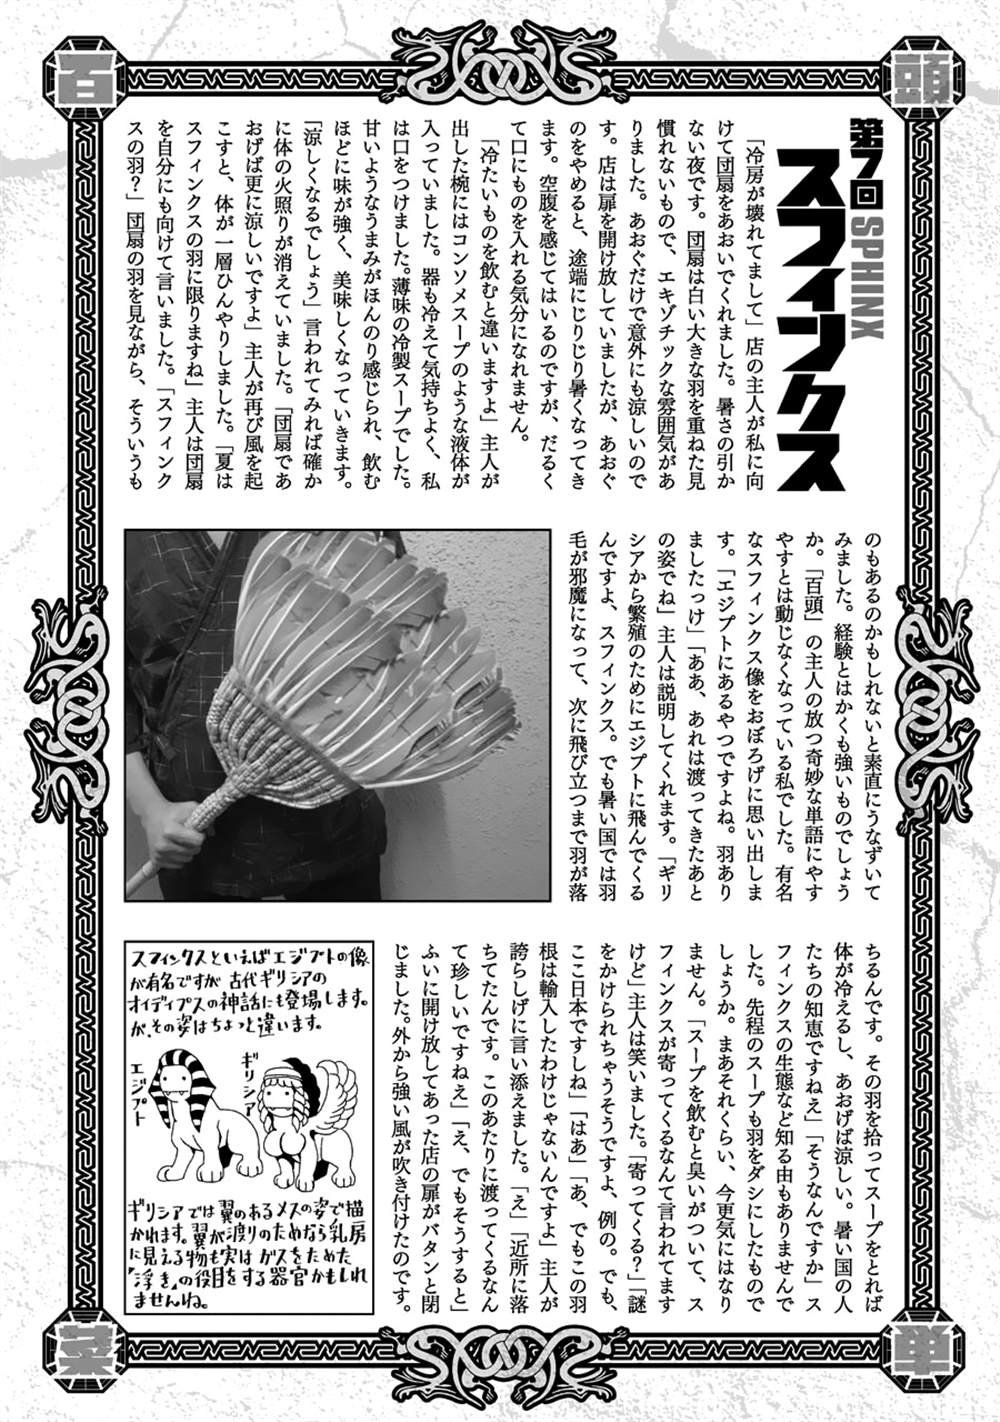 百
頭
菜
単
第7回
SPHINX
スフィンクス
「冷房が壊れてまして」店の主人が私に向
けて団扇をあおいでくれました。暑さの引か
ない夜です。団扇は白い大きな羽を重ねた見
慣れないもので、エキゾチックな雰囲気があ
りました。あおぐだけで意外にも涼しいので
す。店は扉を開け放していましたが、あおぐ
のをやめると、途端にじりじり暑くなってき
ます。空腹を感じてはいるのですが、だるく
て口にものを入れる気分になれません。
「冷たいものを飲むと違いますよ」主人が
出した椀にはコンソメスープのような液体が
入っていました。器も冷えて気持ちよく、私
は口をつけました。薄味の冷製スープでした。
甘いようなうまみがほんのり感じられ、飲む
ほどに味が強く、美味しくなっていきます。
「涼しくなるでしょう」言われてみれば確か
に体の火照りが消えていました。「団扇であ
おげば更に涼しいですよ」主人が再び風を起
こすと、体が一層ひんやりしました。「夏は
スフィンクスの羽に限りますね」主人は団扇
を自分にも向けて言いました。「スフィンク
スの羽?」団扇の羽を見ながら、そういうも
のもあるのかもしれないと素直にうなずいて
みました。経験とはかくも強いものでしょう
か。「百頭」の主人の放つ奇妙な単語にやす
やすとは動じなくなっている私でした。有名
なスフィンクス像をおぼろげに思い出しま
す。「エジプトにあるやつですよね。羽あり
ましたっけ」「ああ、あれは渡ってきたあと
の姿でね」主人は説明してくれます。「ギリ
シアから繁殖のためにエジプトに飛んでくる
んですよ、スフィンクス。でも暑い国では羽
毛が邪魔になって、次に飛び立つまで羽が落
ちるんです。その羽を拾ってスープをとれば
体が冷えるし、あおげば涼しい。暑い国の人
たちの知恵ですねえ」「そうなんですか」ス
フィンクスの生態など知る由もありませんで
した。先程のスープも羽をダシにしたもので
しょうか。まあそれくらい、今更気にはなり
ません。「スープを飲むと臭いがついて、ス
フィンクスが寄ってくるなんて言われてます
けど」主人は笑いました。「寄ってくる?」「謎
をかけられちゃうそうですよ、例の。でも、
ここ日本ですしね」「はあ」「あ、でもこの羽
根は輸入したわけじゃないんですよ」主人が
誇らしげに言い添えました。「え」「近所に落
ちてたんです。このあたりに渡ってくるなん
て珍しいですねえ」「え、でもそうすると」
ふいに開け放してあった店の扉がバタンと閉
じました。外から強い風が吹き付けたのです。
スフィンクスといえばエジプトの像
が有名ですが 古代ギリシアの
オイディプスの神話にも登場します。
が、その姿はちょっと違います。
エジプト
ギリシア
ギリシアでは翼のあるメスの姿で描
かれます。翼が渡りのためなら乳房
に見える物も実は ガスをためた
「浮き」の役目をする器官かもしれ
ませんね。